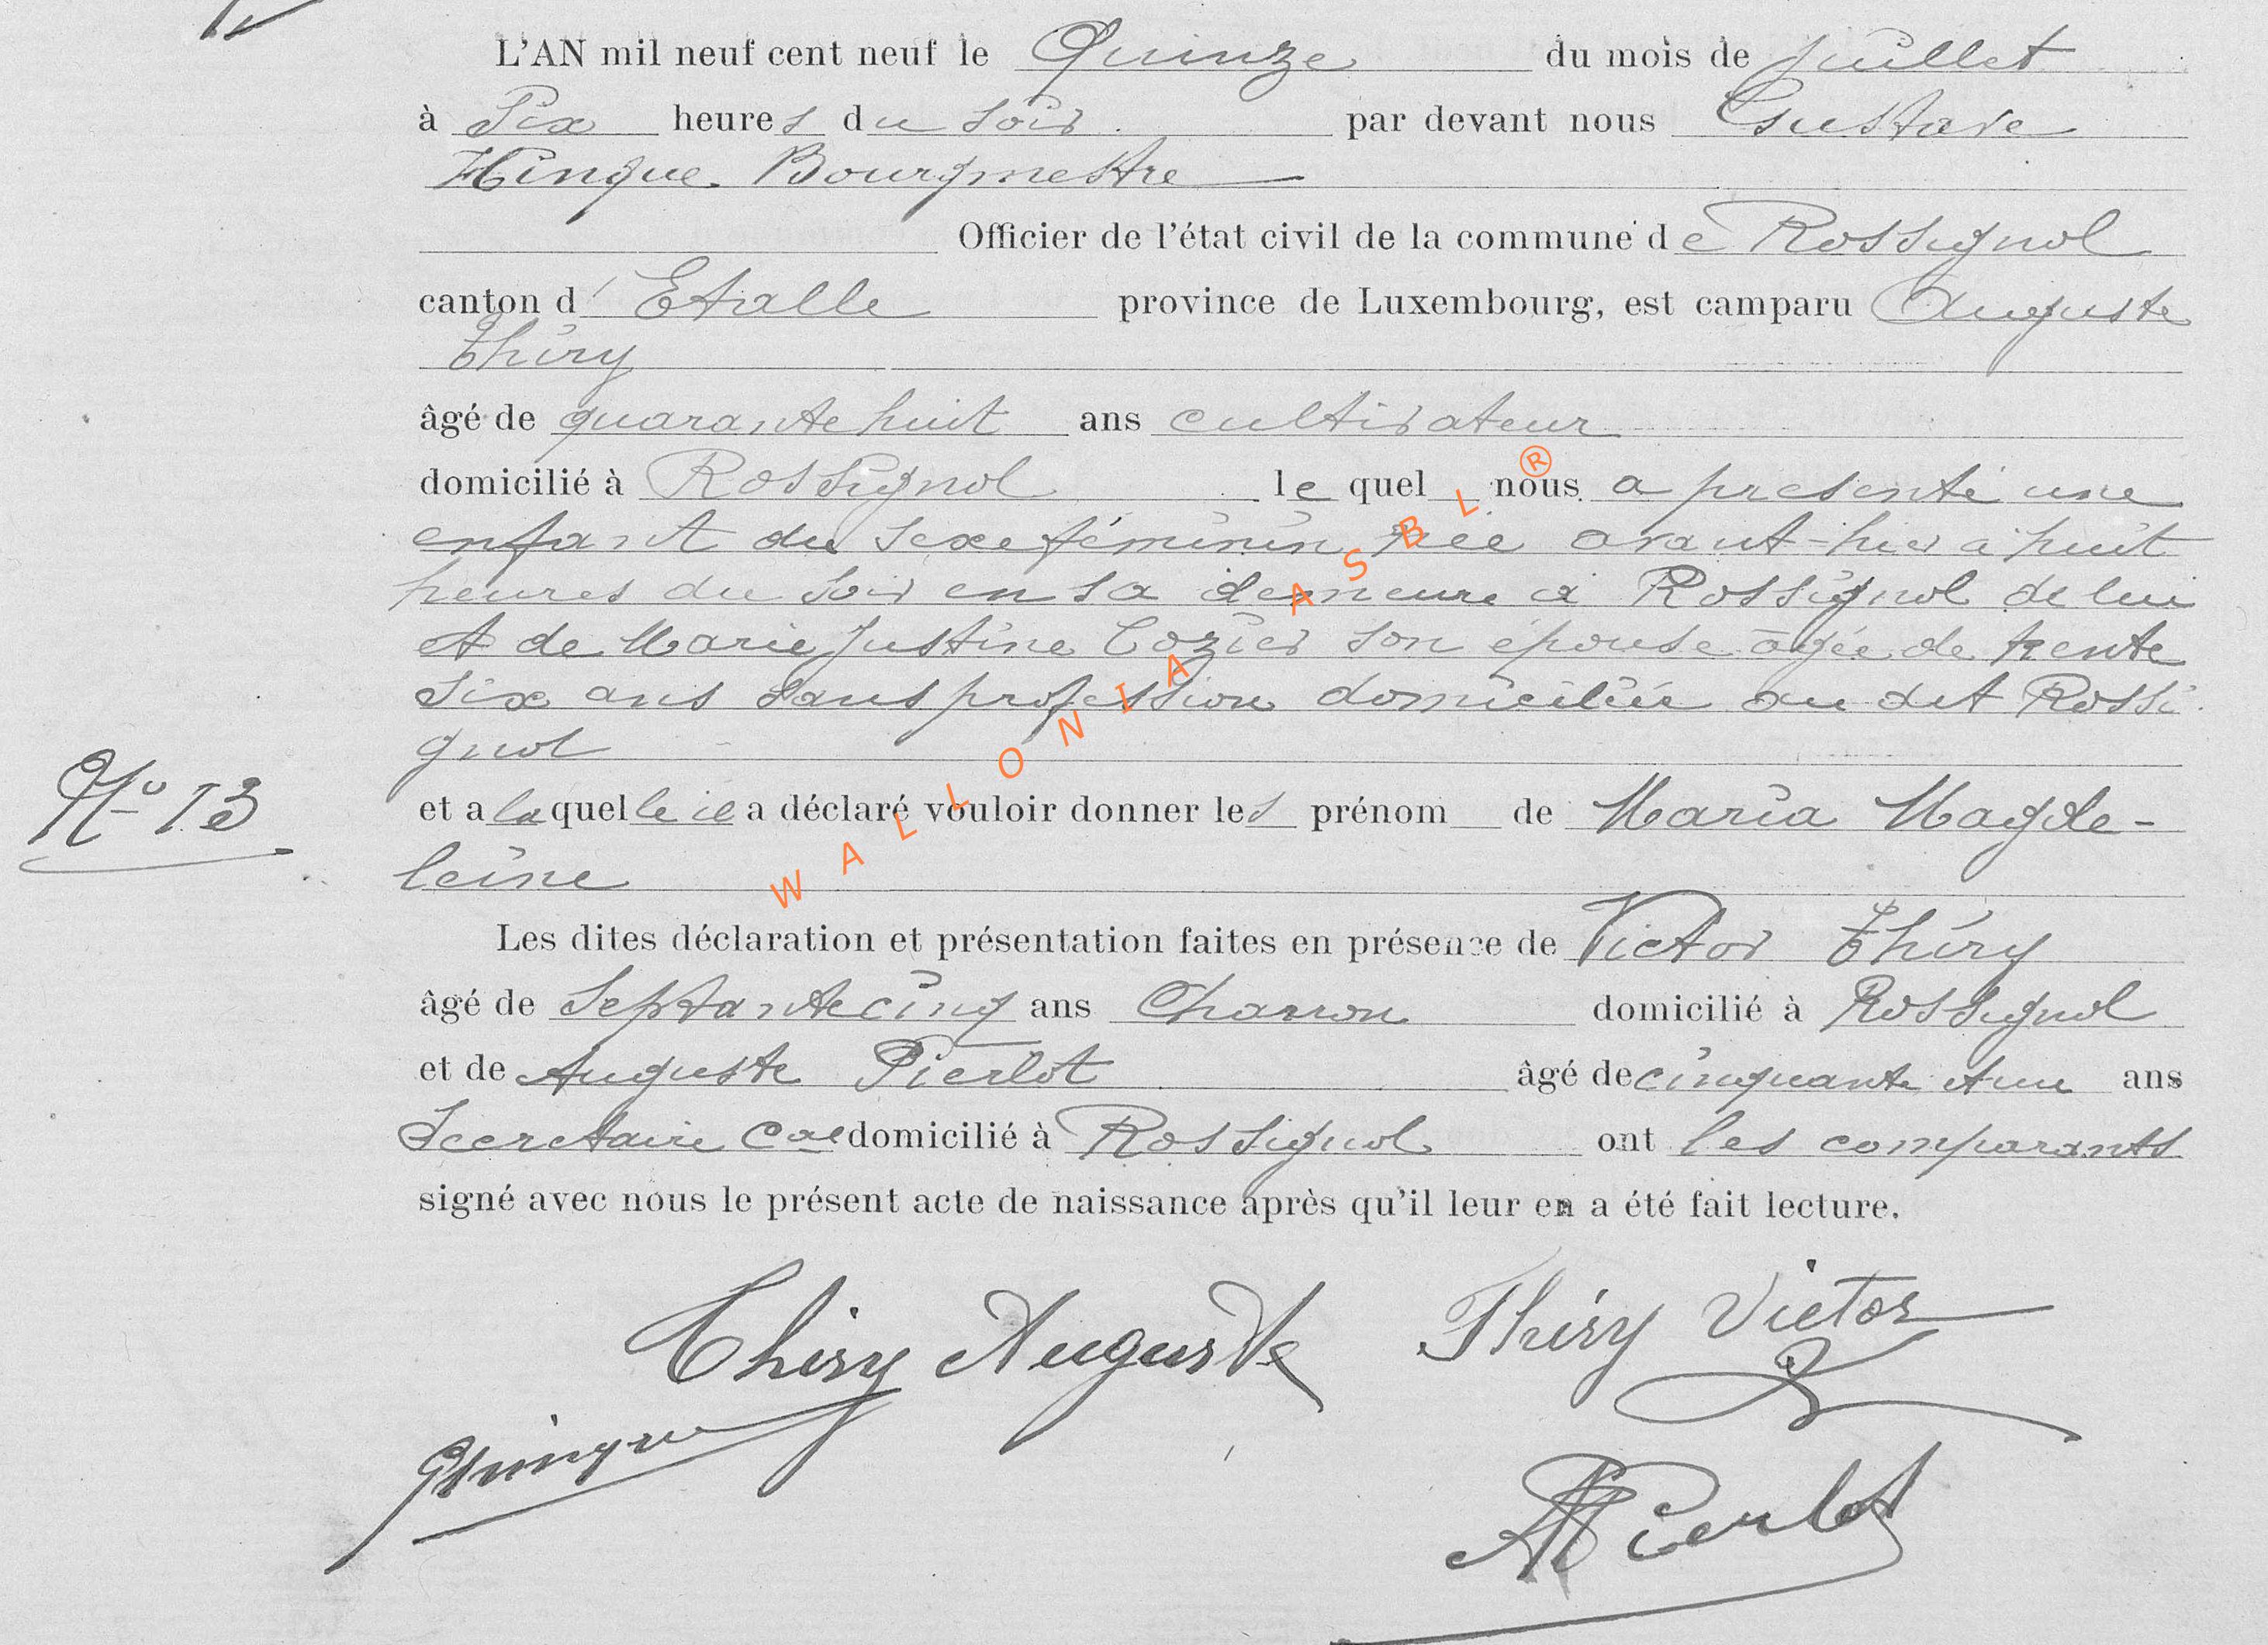 L'AN mil neuf cent neuf le Quinze du mois de juillet
à Six heures du soir par devant nous Gustave
Hinque Bourgmestre
Officier de l'état civil de la commune de Rossignol
canton d'Etalle province de Luxembourg, est camparu Auguste
Thiry
âgé de quarante huit ans cultivateur
domicilié à Rossignol le quel nous a presenté une
enfant du sexe féminin née avant-hier à huit
heures du soir en sa demeure à Rossignol de lui
et de Marie Justine Cozier son épouse âgée de trente
six ans sans profession domiciliée au dit Rossi
gnol
N° 13
et a laquelle il a déclaré vouloir donner les prénom de Maria Magde-
leine
Les dites déclaration et présentation faites en présence de Victor Thiry
âgé de Septante cinq ans Charron domicilié à Rossignol
et de Auguste Pierlot âgé de cinquante et un ans
Secretaire Cal domicilié à Rossignol ont les comparants
signé avec nous le présent acte de naissance après qu'il leur en a été fait lecture.
Thiry Auguste Thiry Victor
GHinque
APierlot
WALLONIA ASBL ®